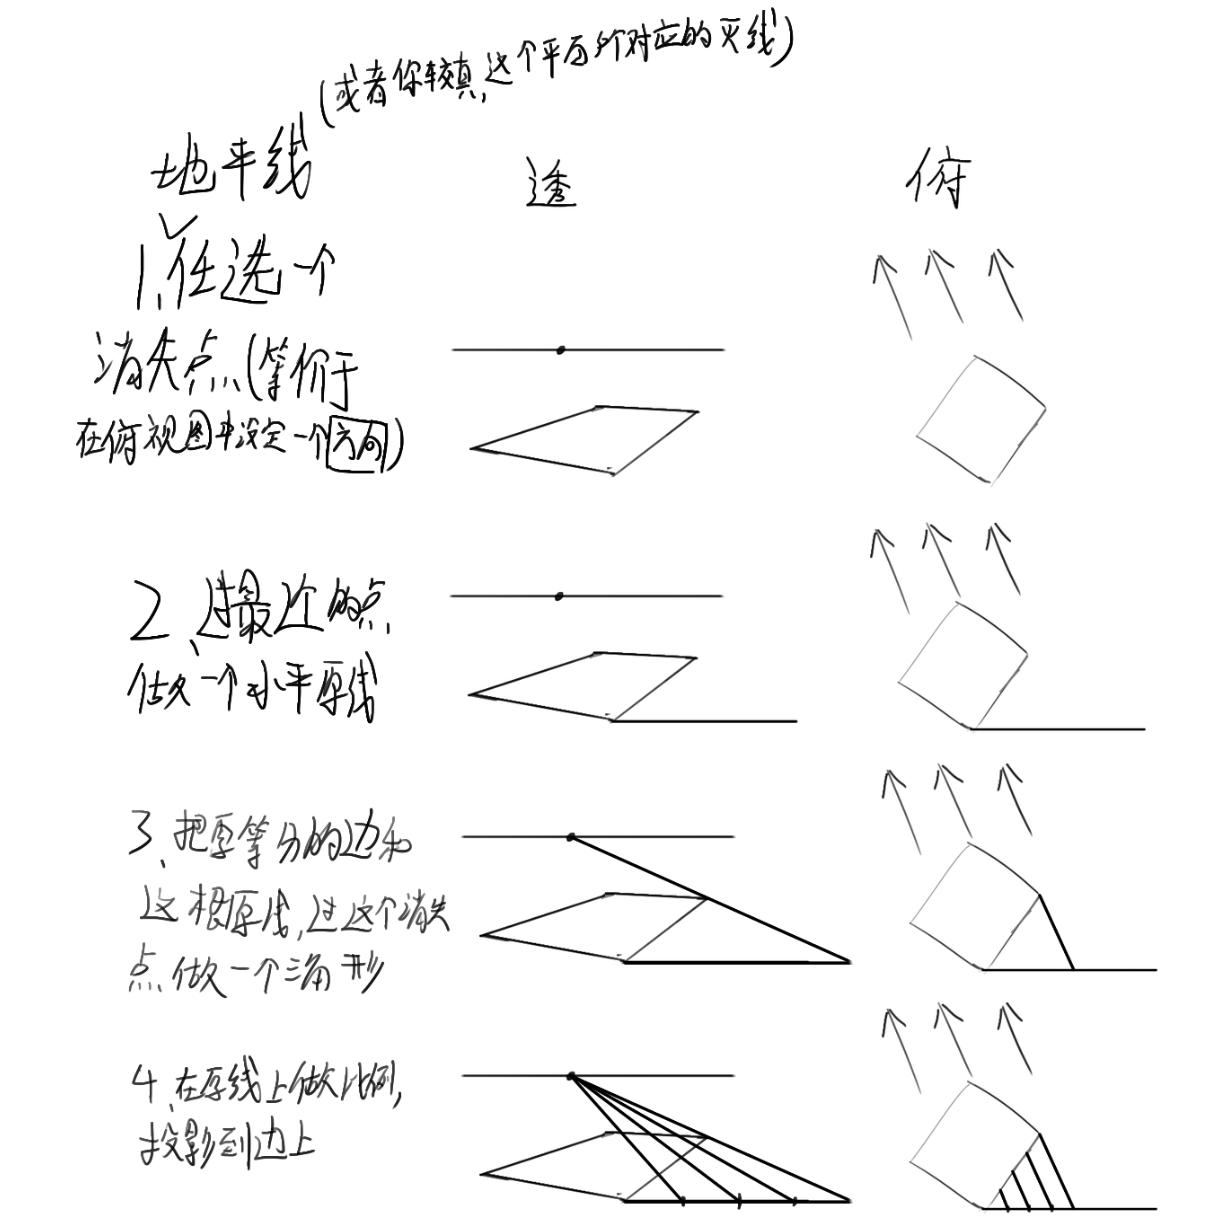 (或者你较真,这个平面所对应的灭线)
地平线
透
俯
1、任选一个
消失点(等价于
在俯视图中设定一个方向)
2、过最近的点
做一个水平原线
3、把要等分的边和
这根原线,过这个消失
点做一个三角形
4、在原线上做比例,
投影到边上